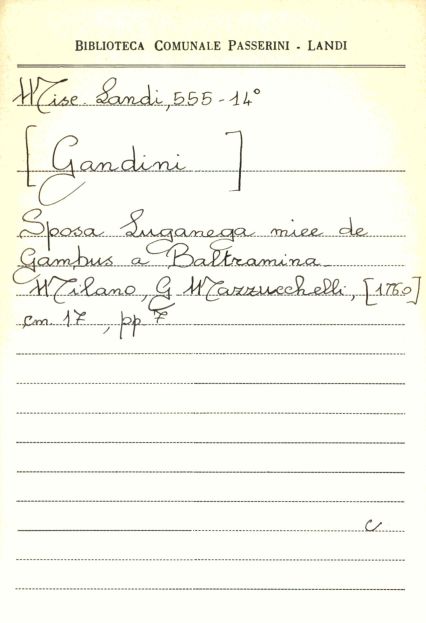 BIBLIOTECA COMUNALE PASSERINI - LANDI
Misc. Landi, 555 - 14°
[Gandini]
Sposa Luganega miee de
Gambus a Baltramina
Milano, G Mazzucchelli, [1760]
cm. 17, pp 7
c